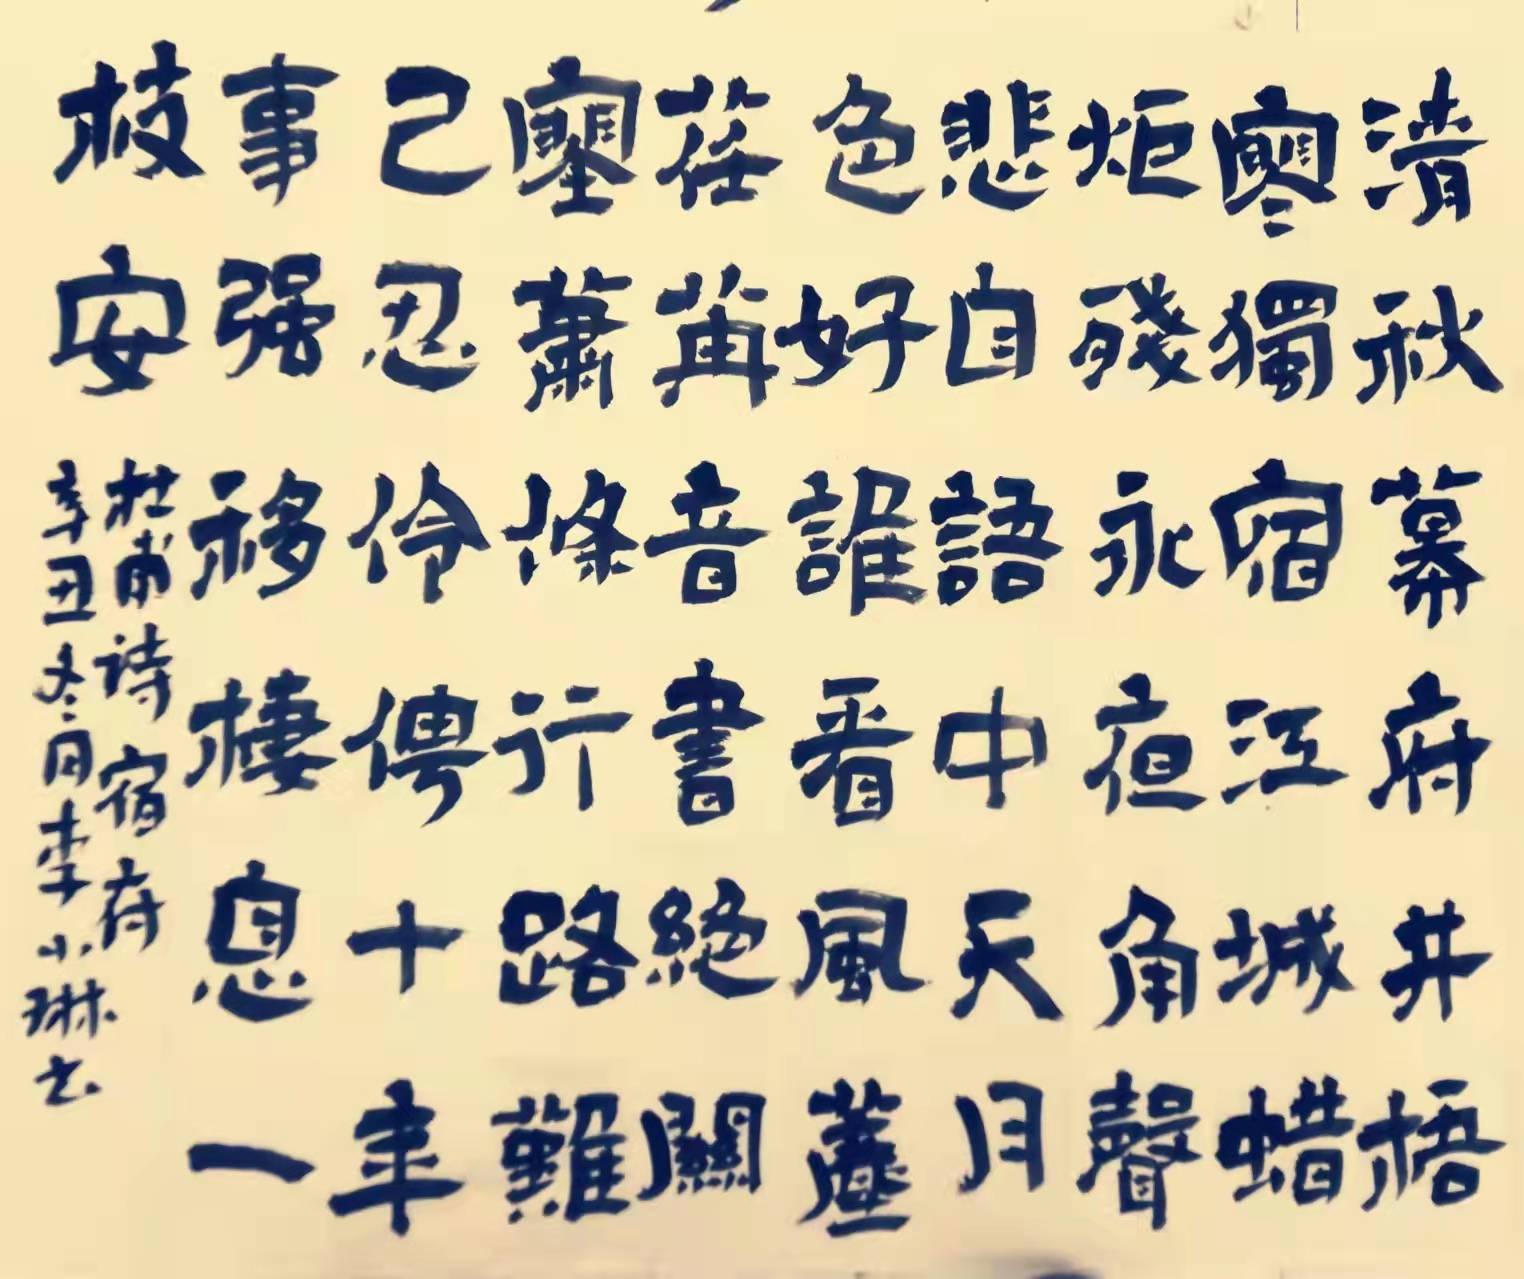 清秋幕府井梧
寒獨宿江城蜡
炬殘永夜角聲
悲自語中天月
色好誰看風塵
荏苒音書絕關
塞蕭條行路難
已忍伶俜十年
事强移棲息一
枝安
杜甫诗宿府
辛丑冬月李小琳书